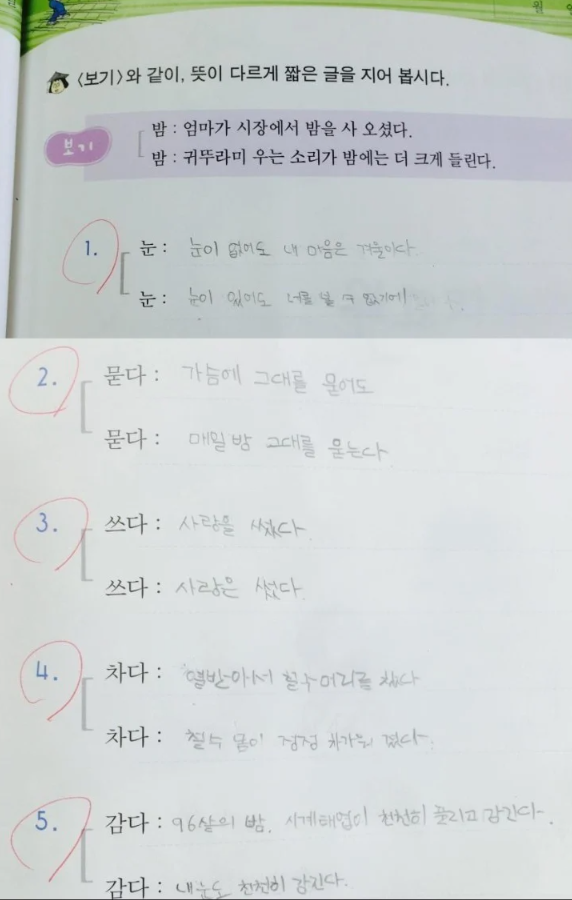 월
<보기>와 같이, 뜻이 다르게 짧은 글을 지어 봅시다.
보기
밤 : 엄마가 시장에서 밤을 사 오셨다.
밤 : 귀뚜라미 우는 소리가 밤에는 더 크게 들린다.
1. 눈 : 눈이 없어도 내 마음은 겨울이다.
눈 : 눈이 있어도 너를 볼 수 없기에
2. 묻다 : 가슴에 그대를 묻어도
묻다 : 매일 밤 그대를 묻는다
3. 쓰다 : 사랑을 썼다.
쓰다 : 사랑은 썼다.
4. 차다 : 열받아서 철수 머리를 찼다
차다 : 철수 몸이 점점 차가워 졌다.
5. 감다 : 96살의 밤, 시계태엽이 천천히 풀리고 감긴다.
감다 : 내 눈도 천천히 감긴다.